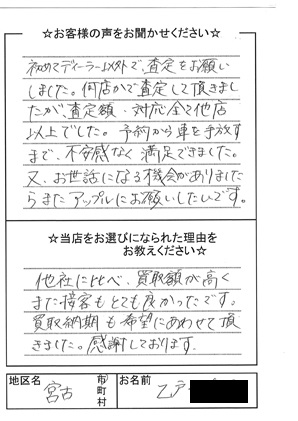 ☆お客様の声をお聞かせください☆
初めてディーラー以外で、査定をお願い
しました。何店かで査定して頂きまし
たが、査定額・対応全て他店
以上でした。予約から車を手放す
まで、不安感なく満足できました。
又、お世話になる機会がありました
らまたアップルにお願いしたいです。
☆当店をお選びになられた理由を
お教えください☆
他社に比べ、買取額が高く
また接客もとても良かったです。
買取納期も希望にあわせて頂
きました。感謝しております。
地区名 宮古 市町村 お名前